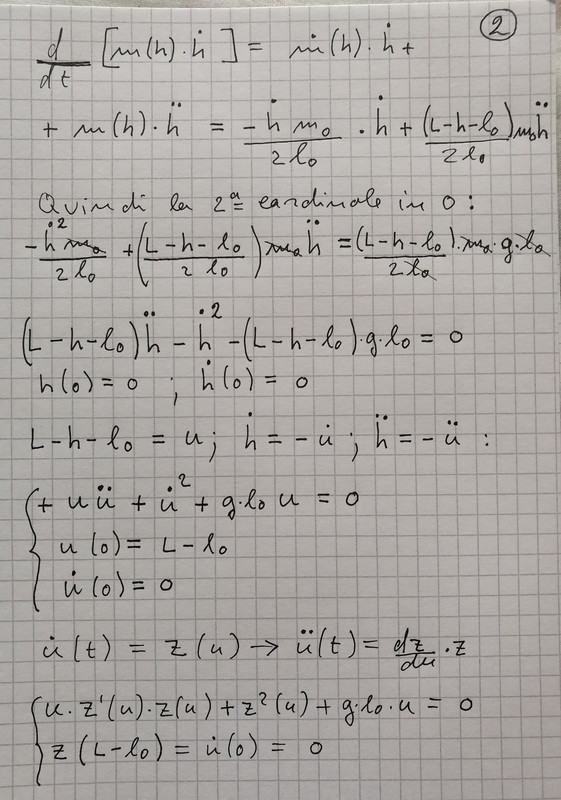 ②
d/dt [m(h)·ḣ] = ṁ(h)·ḣ +
+ m(h)·ḧ = (-ḣ m₀)/(2l₀) · ḣ + ((L-h-l₀)/(2l₀)) m₀ḧ
Quindi la 2ª cardinale in 0 :
-ḣ² m₀/(2l₀) + ((L-h-l₀)/(2l₀)) m₀ḧ = ((L-h-l₀)/(2l₀))·m₀·g·l₀
(L-h-l₀)ḧ - ḣ² - (L-h-l₀)·g·l₀ = 0
h(0) = 0 ; ḣ(0) = 0
L-h-l₀ = u; ḣ = -u̇ ; ḧ = -ü :
{ + uü + u̇² + g·l₀ u = 0
u(0) = L-l₀
u̇(0) = 0
u̇(t) = z(u) → ü(t) = dz/du · z
{ u·z'(u)·z(u) + z²(u) + g·l₀·u = 0
z(L-l₀) = u̇(0) = 0